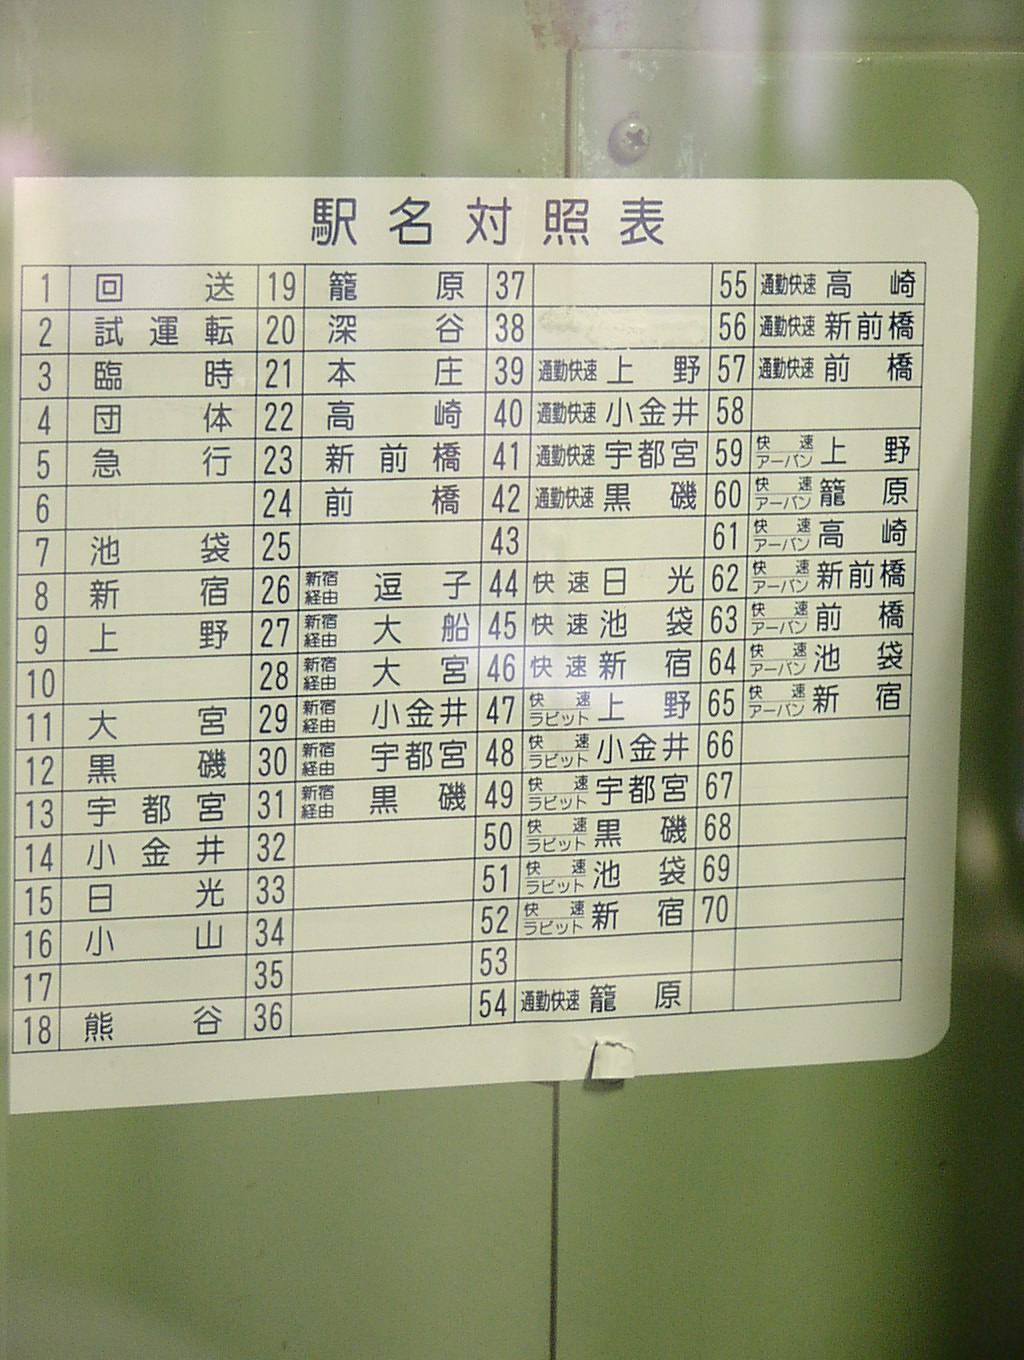 駅名対照表
1 回送 19 籠原 37 55 通勤快速 高崎
2 試運転 20 深谷 38 56 通勤快速 新前橋
3 臨時 21 本庄 39 通勤快速 上野 57 通勤快速 前橋
4 団体 22 高崎 40 通勤快速 小金井 58
5 急行 23 新前橋 41 通勤快速 宇都宮 59 快速アーバン 上野
6 24 前橋 42 通勤快速 黒磯 60 快速アーバン 籠原
7 池袋 25 43 61 快速アーバン 高崎
8 新宿 26 新宿経由 逗子 44 快速 日光 62 快速アーバン 新前橋
9 上野 27 新宿経由 大船 45 快速 池袋 63 快速アーバン 前橋
10 28 新宿経由 大宮 46 快速 新宿 64 快速アーバン 池袋
11 大宮 29 新宿経由 小金井 47 快速ラビット 上野 65 快速アーバン 新宿
12 黒磯 30 新宿経由 宇都宮 48 快速ラビット 小金井 66
13 宇都宮 31 新宿経由 黒磯 49 快速ラビット 宇都宮 67
14 小金井 32 50 快速ラビット 黒磯 68
15 日光 33 51 快速ラビット 池袋 69
16 小山 34 52 快速ラビット 新宿 70
17 35 53
18 熊谷 36 54 通勤快速 籠原